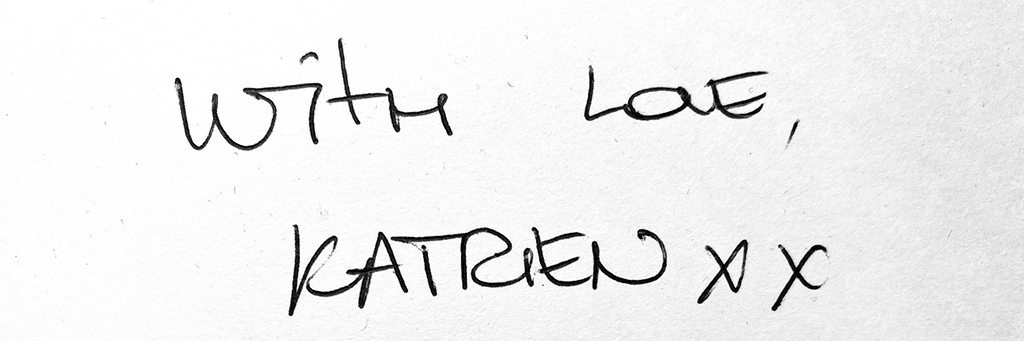 With LOVE,
KATRIEN xx